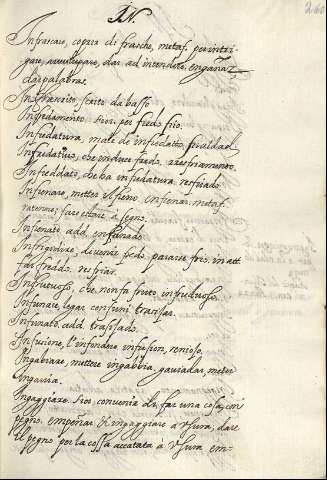 IN.
260
Infrascare, coprir di frasche, metaf. per intri-
gare, avviluppare, dar ad intendere, engañar
dar palabras.
Infrascritto, scritto da basso
Infredamento. fior. per fredo frio.
Infredatura, male de infredatto, frialdad
Infredativo, che induce fredo. aresfriamento.
Infreddato, che ha infredatura. resfriado.
Infrenare, metter il freno, enfrenar. metaf.
ratener, fare stare a segno.
Infrenato. add. enfrenado.
Infrigidire, divenir fredo. pararse frio. in att.
far freddo. resfriar.
Infrutuoso, che non fa fruto, infrutuoso.
Infunare, legar con funi trassar.
Infunato. add. trassado.
Infusione, l'infondere infusion, remoio.
Ingabiare, mettere in gabbia, gauiadar, meter
in gauia.
Ingaggiare. Fior. convenir di far una cosa, con
pegno. empeñar. Ingaggiare a usura, dare
il pegno per la cossa accatata à usura em-